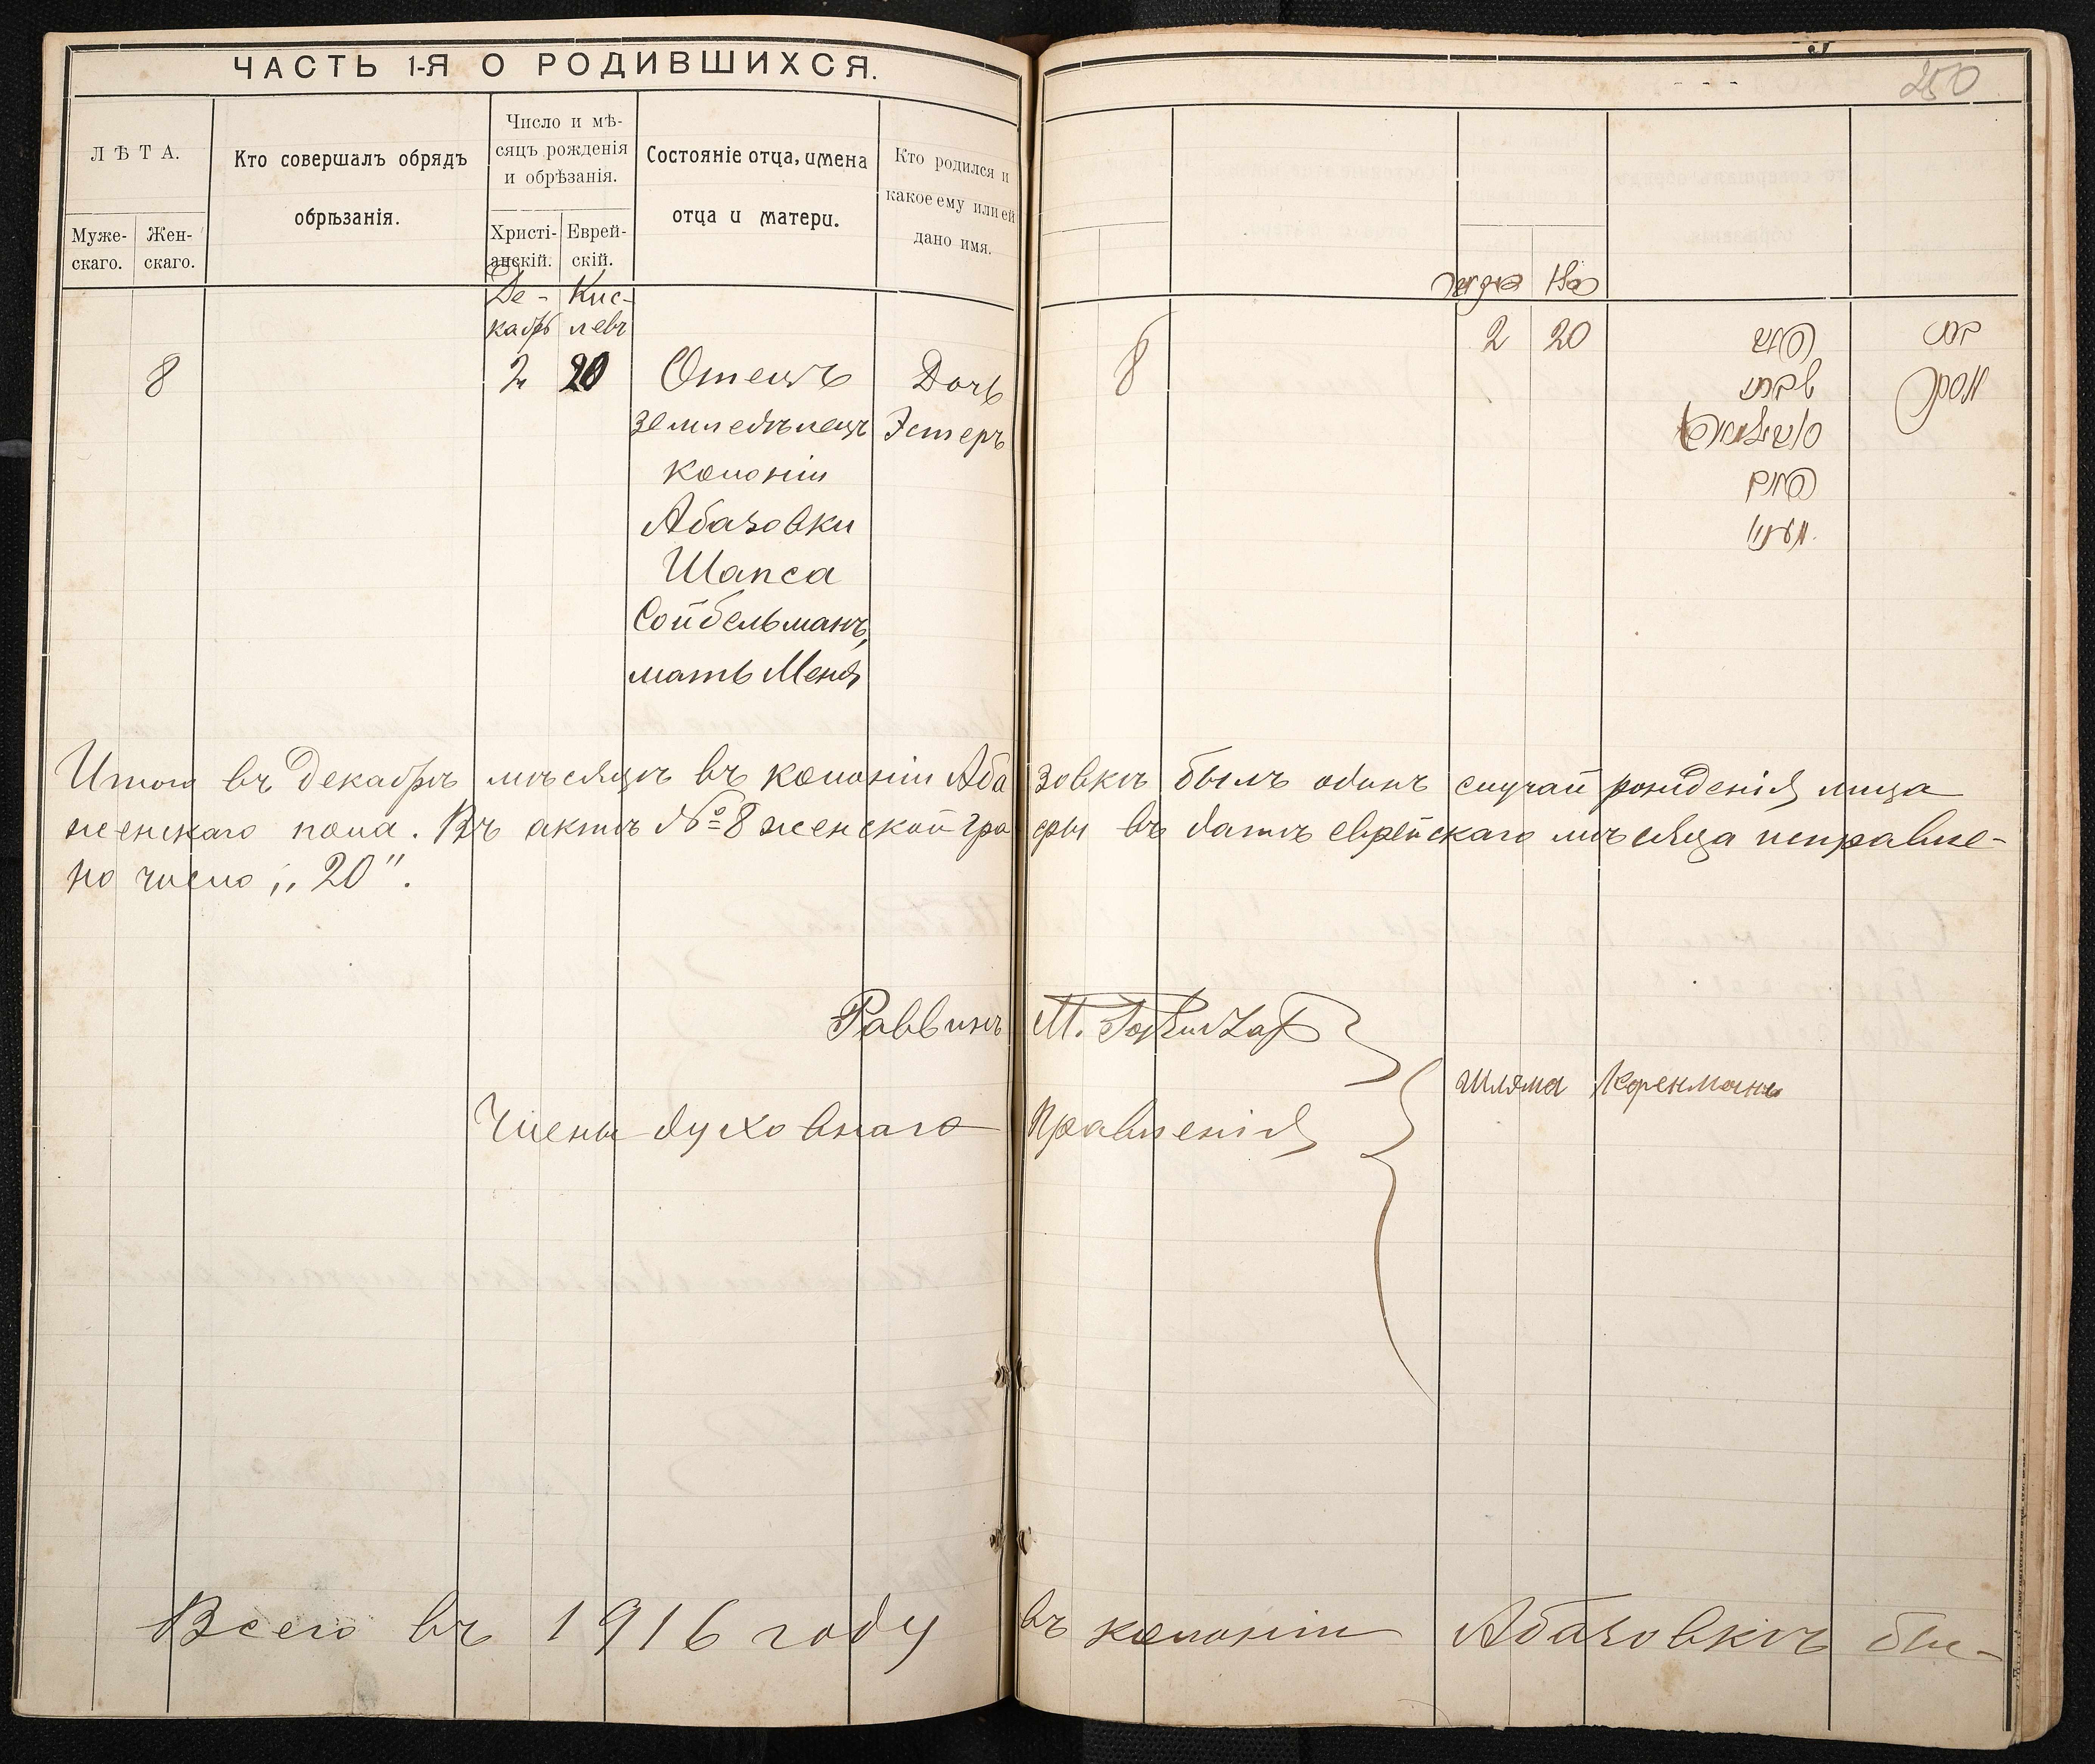 ЧАСТЬ 1-Я О РОДИВШИХСЯ.
250
ЛѢТА.
Муже-
скаго.
Жен-
скаго.
Кто совершалъ обрядъ
обрѣзанія.
Число и мѣ-
сяцъ рожденія
и обрѣзанія.
Христі-
анскій.
Еврей-
скій.
Состояніе отца, имена
отца и матери.
Кто родился и
какое ему или ей
дано имя.
Де-
кабрь
Кис-
левъ
8
2
20
Отецъ
земледѣлецъ
колоніи
Абазовки
Шапса
Сойбельманъ,
мать Меня
Дочь
Эстеръ
8
2
20
Итого въ Декабрѣ мѣсяцѣ въ колоніи Абазовкѣ былъ одинъ случай рожденія лица
женскаго пола. Въ актѣ № 8 женской графы въ датѣ еврейскаго мѣсяца исправле-
но число „20".
Раввинъ М.
Члены духовнаго Правленія
Шлема Коренманъ
Всего въ 1916 году въ колоніи Абазовкѣ бы-